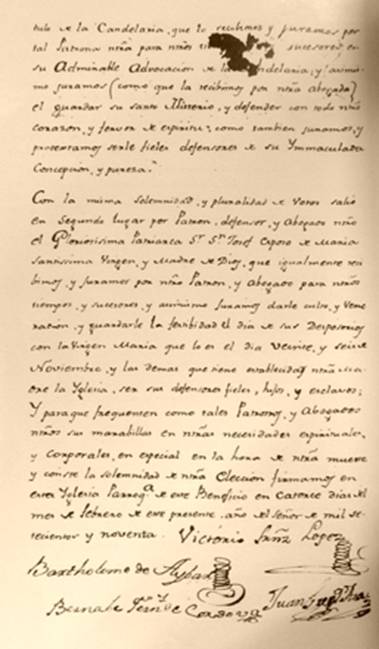 tulo de la Candelaria, que lo recibimos y juramos por
tal Patrona nrâ para nrôs sucesores, en
su Admirable Advocacion de la Candelaria; y asimis-
mo juramos (como que la recibimos por nrâ abogada)
el guardar su santo Misterio, y defender con todo nrô
corazon, y fervor de espiritu; como tambien juramos, y
protestamos serle fieles defensores de su Ymmaculada
Concepcion, y pureza.
Con la misma solemnidad, y pluralidad de votos salio
en segundo lugar por Patron, defensor, y Abogado nrô
el Gloriosisimo Patriarca Sr. Sn. Josef Esposo de Maria
Santissima Virgen, y Madre de Dios, que igualmente reci-
bimos, y juramos por nrô Patron, y Abogado para nrôs
tiempos, y sucesores, y asimismo juramos darle culto, y vene-
racion, y guardarle la festibidad el dia de sus Desposorios
con la Virgen Maria que lo es el dia veinte, y seis de
Noviembre, y las demas que tiene establecidas nrâ Ma-
dre la Yglesia, ser sus defensores fieles, hijos, y esclavos;
Y para que frequenten como tales Patronos, y Abogados
nrôs sus marabillas en nrâs necesidades espirituales,
y corporales, en especial en la hora de nrâ muerte
y conste la solemnidad de nrâ Eleccion firmamos en
esta Yglesia Parroqª. de este Beneficio en catorce dias del
mes de febrero de este presente año del señor de mil se-
tecientos y noventa. Victorio Sañz Lopez
Bartholome de Aybar
Bernabe Fern.z de Cordova Juan